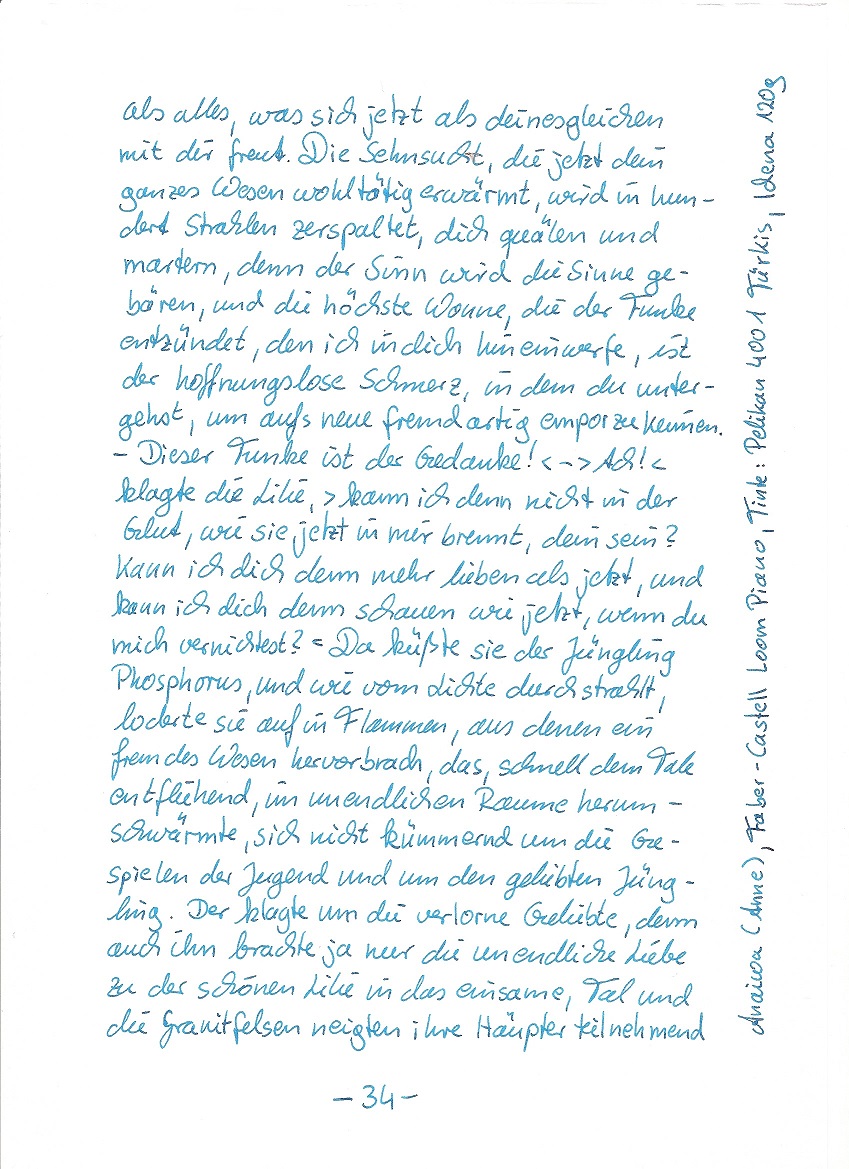 als alles, was sich jetzt als deinesgleichen
mit dir freut. Die Sehnsucht, die jetzt dein
ganzes Wesen wohltätig erwärmt, wird in hun-
dert Strahlen zerspaltet, dich quälen und
martern, denn der Sinn wird die Sinne ge-
bären, und die höchste Wonne, die der Funke
entzündet, den ich in dich hineinwerfe, ist
der hoffnungslose Schmerz, in dem du unter-
gehst, um aufs neue fremdartig emporzukeimen.
- Dieser Funke ist der Gedanke! < - > Ach! <
klagte die Lilie, > kann ich denn nicht in der
Glut, wie sie jetzt in mir brennt, dein sein?
Kann ich dich denn mehr lieben als jetzt, und
kann ich dich denn schauen wie jetzt, wenn du
mich vernichtest? = Da küßte sie der Jüngling
Phosphorus, und wie vom Lichte durchstrahlt,
loderte sie auf in Flammen, aus denen ein
fremdes Wesen hervorbrach, das, schnell dem Tale
entfliehend, im unendlichen Raume herum-
schwärmte, sich nicht kümmernd um die Ge-
spielen der Jugend und um den geliebten Jüng-
ling. Der klagte um die verlorne Geliebte, denn
auch ihn brachte ja nur die unendliche Liebe
zu der schönen Lilie in das einsame, Tal und
die Granitfelsen neigten ihre Häupter teilnehmend
- 34 -
Anaiwa (Anne), Faber-Castell Loom Piano, Tinte: Pelikan 4001 Türkis, Idena 120g